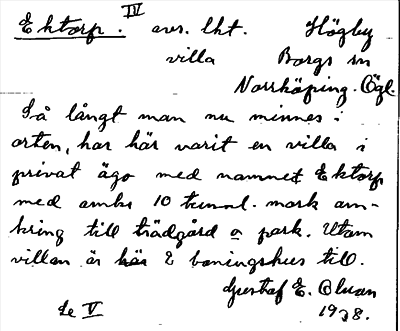 Ektorp. IV avs. lht. Högby
villa Borgs sn
Norrköping. Ögl.
Så långt man nu minnes i
orten, har här varit en villa i
privat ägo med namnet Ektorp
med omkr 10 tunnl. mark om-
kring till trädgård o park. Utom
villan är här 2 boningshus till.
Gustaf E. Olsson
Se V 1938.